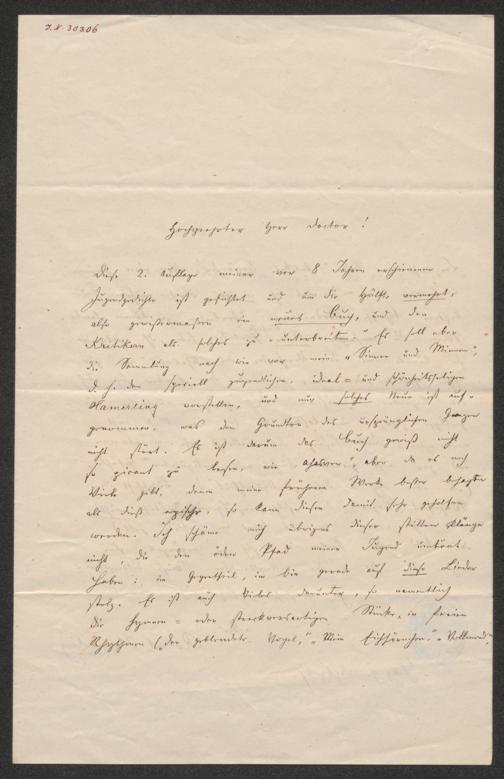 I.N. 30306
Hochgeehrter Herr Doctor!
Diese 2. Auflage meiner vor 8 Jahren erschienenen
Jugendgedichte ist gesichtet und um die Hälfte vermehrt,
also gewissermassen ein neues Buch, und den
Kritikern als solches zu „unterbreiten". Es soll aber
die Sammlung nach wie vor mein „Sinnen und Minnen",
d. h. den speziell jugendlichen, ideal- und schönheitsseligen
Hamerling vorstellen, und nur solches Neue ist auf-
genommen, was den Grundton des ursprünglichen Ganzen
nicht stört. Es ist darum das Buch gewiß nicht
so pikant zu lesen, wie „Ahasver", aber da es noch
Leute gibt, denen meine früheren Werke besser behagten
als dieß epische, so kann diesen damit sehr geholfen
werden. Ich schäme mich übrigens dieser stillen Klänge
nicht, die den öden Pfad meiner Jugend umtönt
haben: im Gegentheil, ich bin gerade auf diese Lieder
stolz. Es ist auch Vieles darunter, so namentlich
die hymnen- oder streckversartigen Stücke, in freien
Rhythmen („Der geblendete Vogel," „Mein Eichhörnchen," „